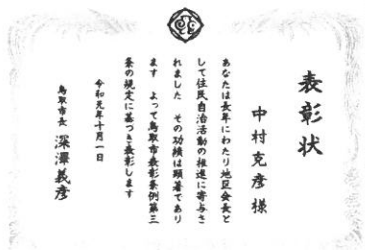 表彰状
中村克彦様
あなたは長年にわたり地区会長と
して住民自治活動の推進に寄与さ
れました その功績は顕著であり
ます よって鳥取市表彰条例第三
条の規定に基づき表彰します
令和元年十月一日
鳥取市長 深澤義彦